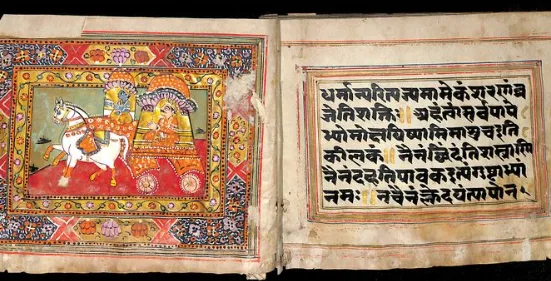 धर्मान्परित्यज्यमामेकंशरणंव्र
जेतिशक्तिः॥अहंत्वासर्वपापे
भ्योमोक्षयिष्यामिमाशुचःइति
कीलकं॥नैनंछिंदंतिशस्त्राणि
नैनंदहतिपावकःइत्यंगुष्ठाभ्यां
नमः॥नचैनंक्लेदयंत्यापोन